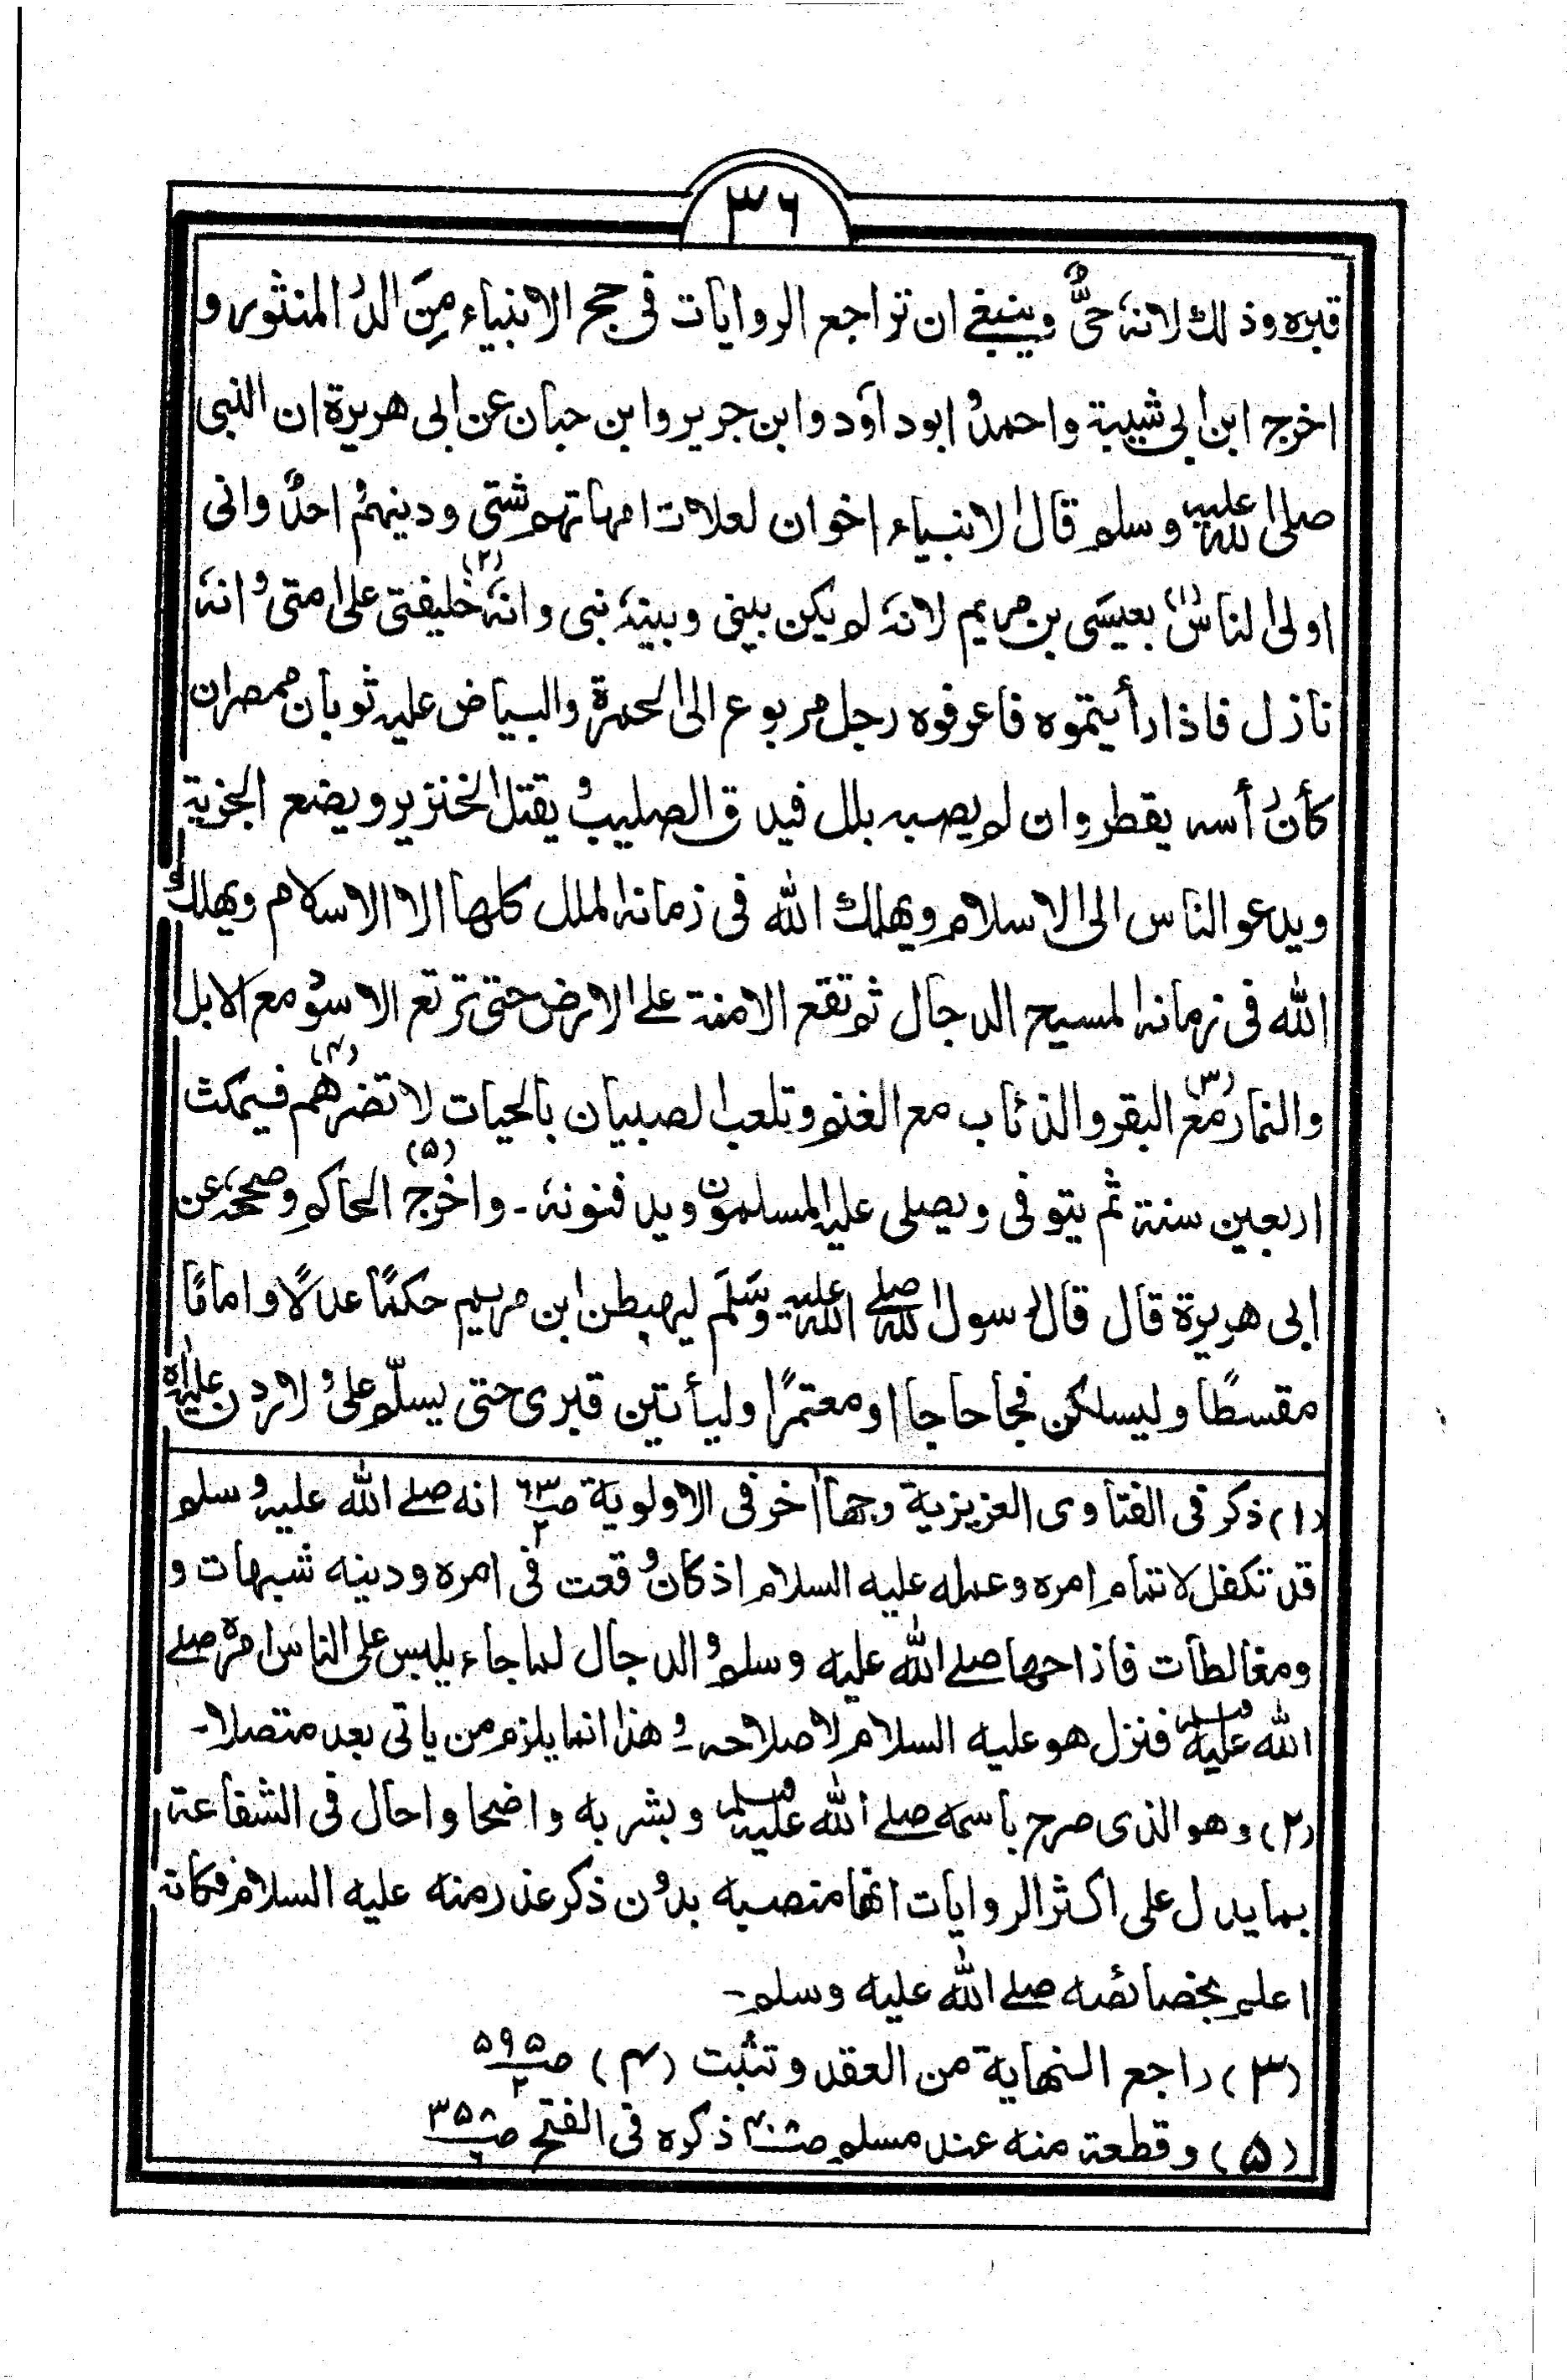 ۳۶
قبره وذلك لانہ حیٌّ وينبغے ان تراجع الروايات فی حج الانبياء مِنَ الدر المنثور و
اخرج ابن ابی شيبة واحمد و ابوداؤد وابن جرير وابن حبان عن ابی هريرة ان النبی
صلی الله عليه وسلم قال الانبياء اخوان لعلات امهاتهم شتی ودينهم واحد وانی
اولی الناس (۱) بعيسَی بن مريم لانہ لم يكن بينی وبينہ نبی وانہ (۲) خليفتی علی امتی و انہ
نازل فاذا رأيتموه فاعرفوه رجل مربوع الی الحمرة والبياض عليه ثوبان ممصران
كأن رأسه يقطر وان لم يصبه بلل فيدق الصليب و يقتل الخنزير ويضع الجزية
ويدعو الناس الی الاسلام ويهلك الله فی زمانه الملل كلها الا الاسلام ويهلك
الله فی زمانه المسيح الدجال ثم تقع الامنة علے الارض حتی ترتع الاسود مع الابل
والنمار (۳) مع البقر والذئاب مع الغنم وتلعب الصبيان بالحيات لا تضرهم (۴) فيمكث
اربعين سنة ثم يتوفی ويصلی عليه المسلمون ويدفنونہ ۔ واخرج (۵) الحاكم وصححہ عن
ابی هريرة قال قال رسول الله صلے الله عليه وسَلَّم ليهبطن ابن مريم حكمًا عدلًا واماما
مقسطًا وليسلكن فجا حاجا او معتمرًا وليأتين قبری حتی يسلّم علی و لاردن عليه
(۱) ذكر فی الفتاوی العزيزية وجها اٰخر فی الاولوية صـ۶۳/۲ انه صلے الله عليه وسلم
قد تكفل لاتمام امره وعمله عليه السلام اذ كان وقعت فی امره ودينه شبهات و
ومغالطات فازاحها صلے الله عليه وسلم و الدجال لما جاء يلبس علی الناس امره صلے
الله عليه وسلم فنزل هو عليه السلام لاصلاحه و هذا انما يلزم من ياتی بعد متصلا۔
(۲) وهو الذی صرح باسمه صلے الله عليه وسلم وبشر به واضحا واحال فی الشفاعة
بما يدل علی اكثر الروايات انها منصبه بدون ذكر عذر منه عليه السلام فكانه
اعلم بخصائصه صلے الله عليه وسلم۔
(۳) راجع النهاية من العقد وتثبت (۴) صـ۵۹۵/۲
(۵) وقطعة منه عند مسلم صـ۴۰۸ ذكره فی الفتح صـ۳۵۸